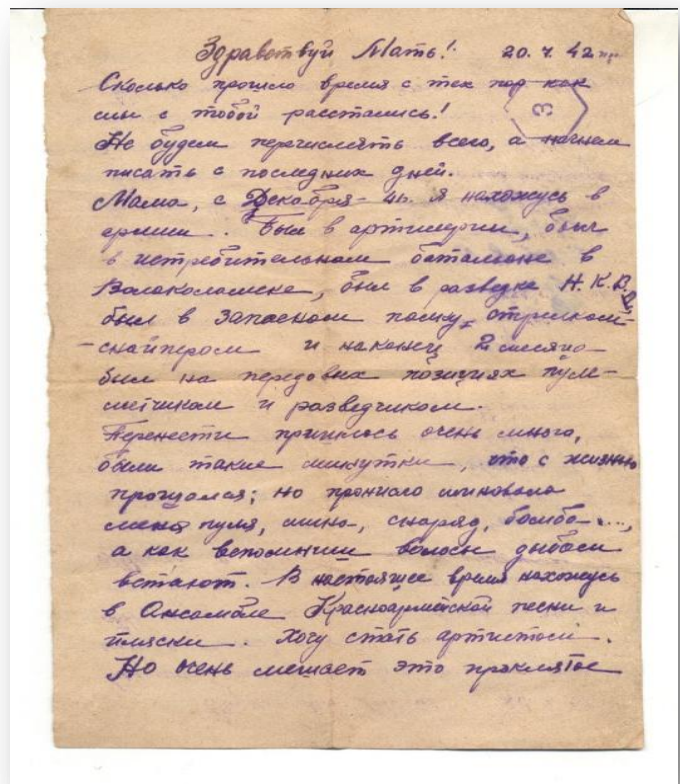 Здравствуй Мать! 20.4.42
Сколько прошло время с тех пор как
мы с тобой расстались!
3
Не будем перечислять всего, а начнем
писать с последних дней.
Мама, с Декабря - 41. Я нахожусь в
армии. Был в артилерии, был
в истребительном баталионе в
Волоколамске, был в разведке Н.К.В.Д.
был в Запасном полку, стрелком-
-снайпером и наконец 2 месяца
был на передовых позициях пуле-
метчиком и разведчиком.
Перенести пришлось очень много,
были такие минутки, что с жизнью
прощался; но пронисло миновала
меня пуля, мина, снаряд, бомба...,
а как вспомним волосы дыбом
встают. В настоящее время нахожусь
в Ансамбле Красноармейской песни и
пляски. Хочу стать артистом.
Но очень мешает это проклятое